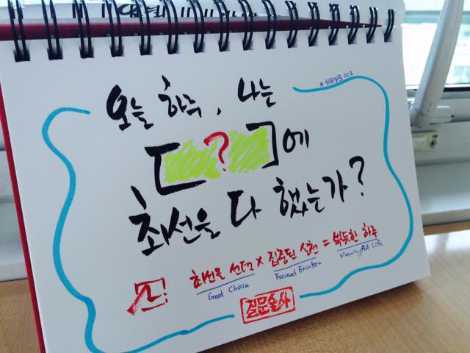 오늘 하루, 나는
[ ? ]에
최선을 다 했는가?
최선의 선택 × 집중된 실천 = 뿌듯한 하루
Good Choice Focused Execution
질문술사